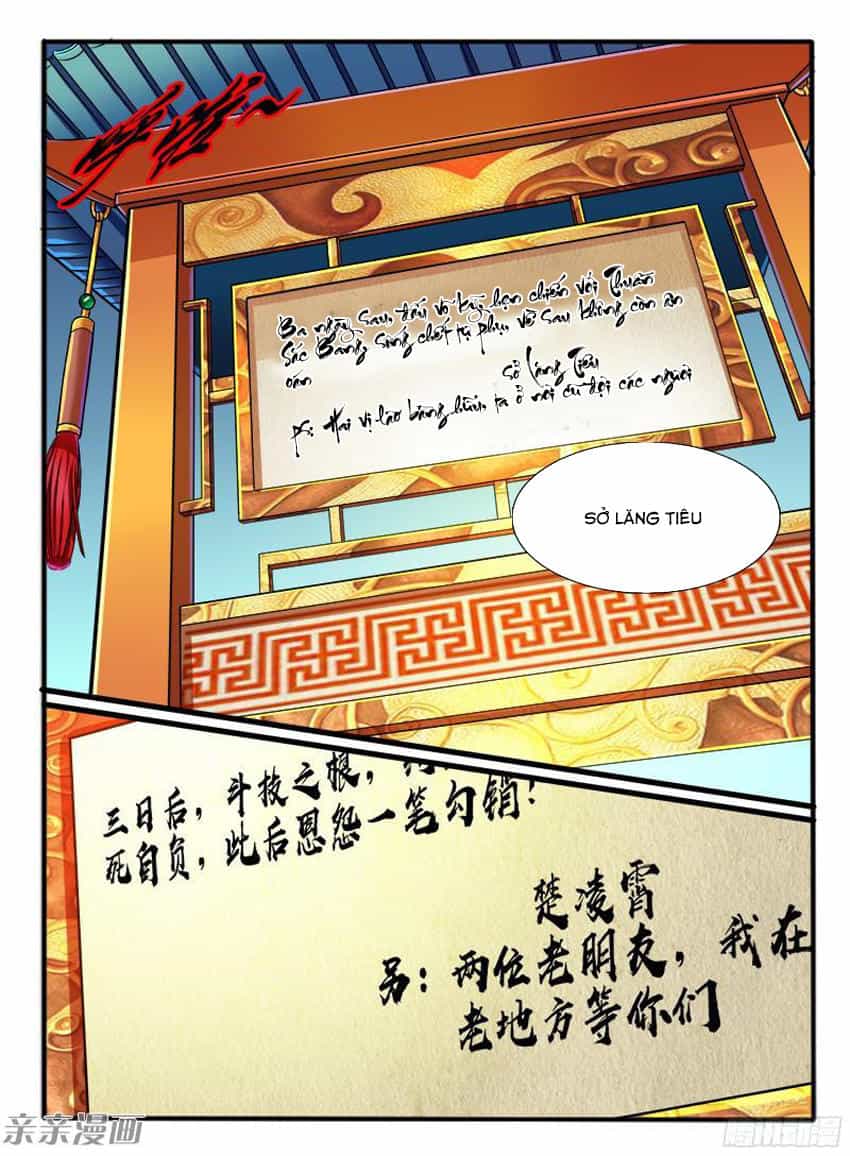 Ba ngày sau, đấu võ kỳ, hẹn chiến với Thuần
Sắc Bang sống chết tự phụ, về sau không còn ân
oán
Sở Lăng Tiêu
ps: Hai vị lão bằng hữu, ta ở nơi cũ đợi các ngươi
SỞ LĂNG TIÊU
三日后，斗技之根，
死自负，此后恩怨一笔勾销！
楚凌霄
另：两位老朋友，我在
老地方等你们
亲亲漫画